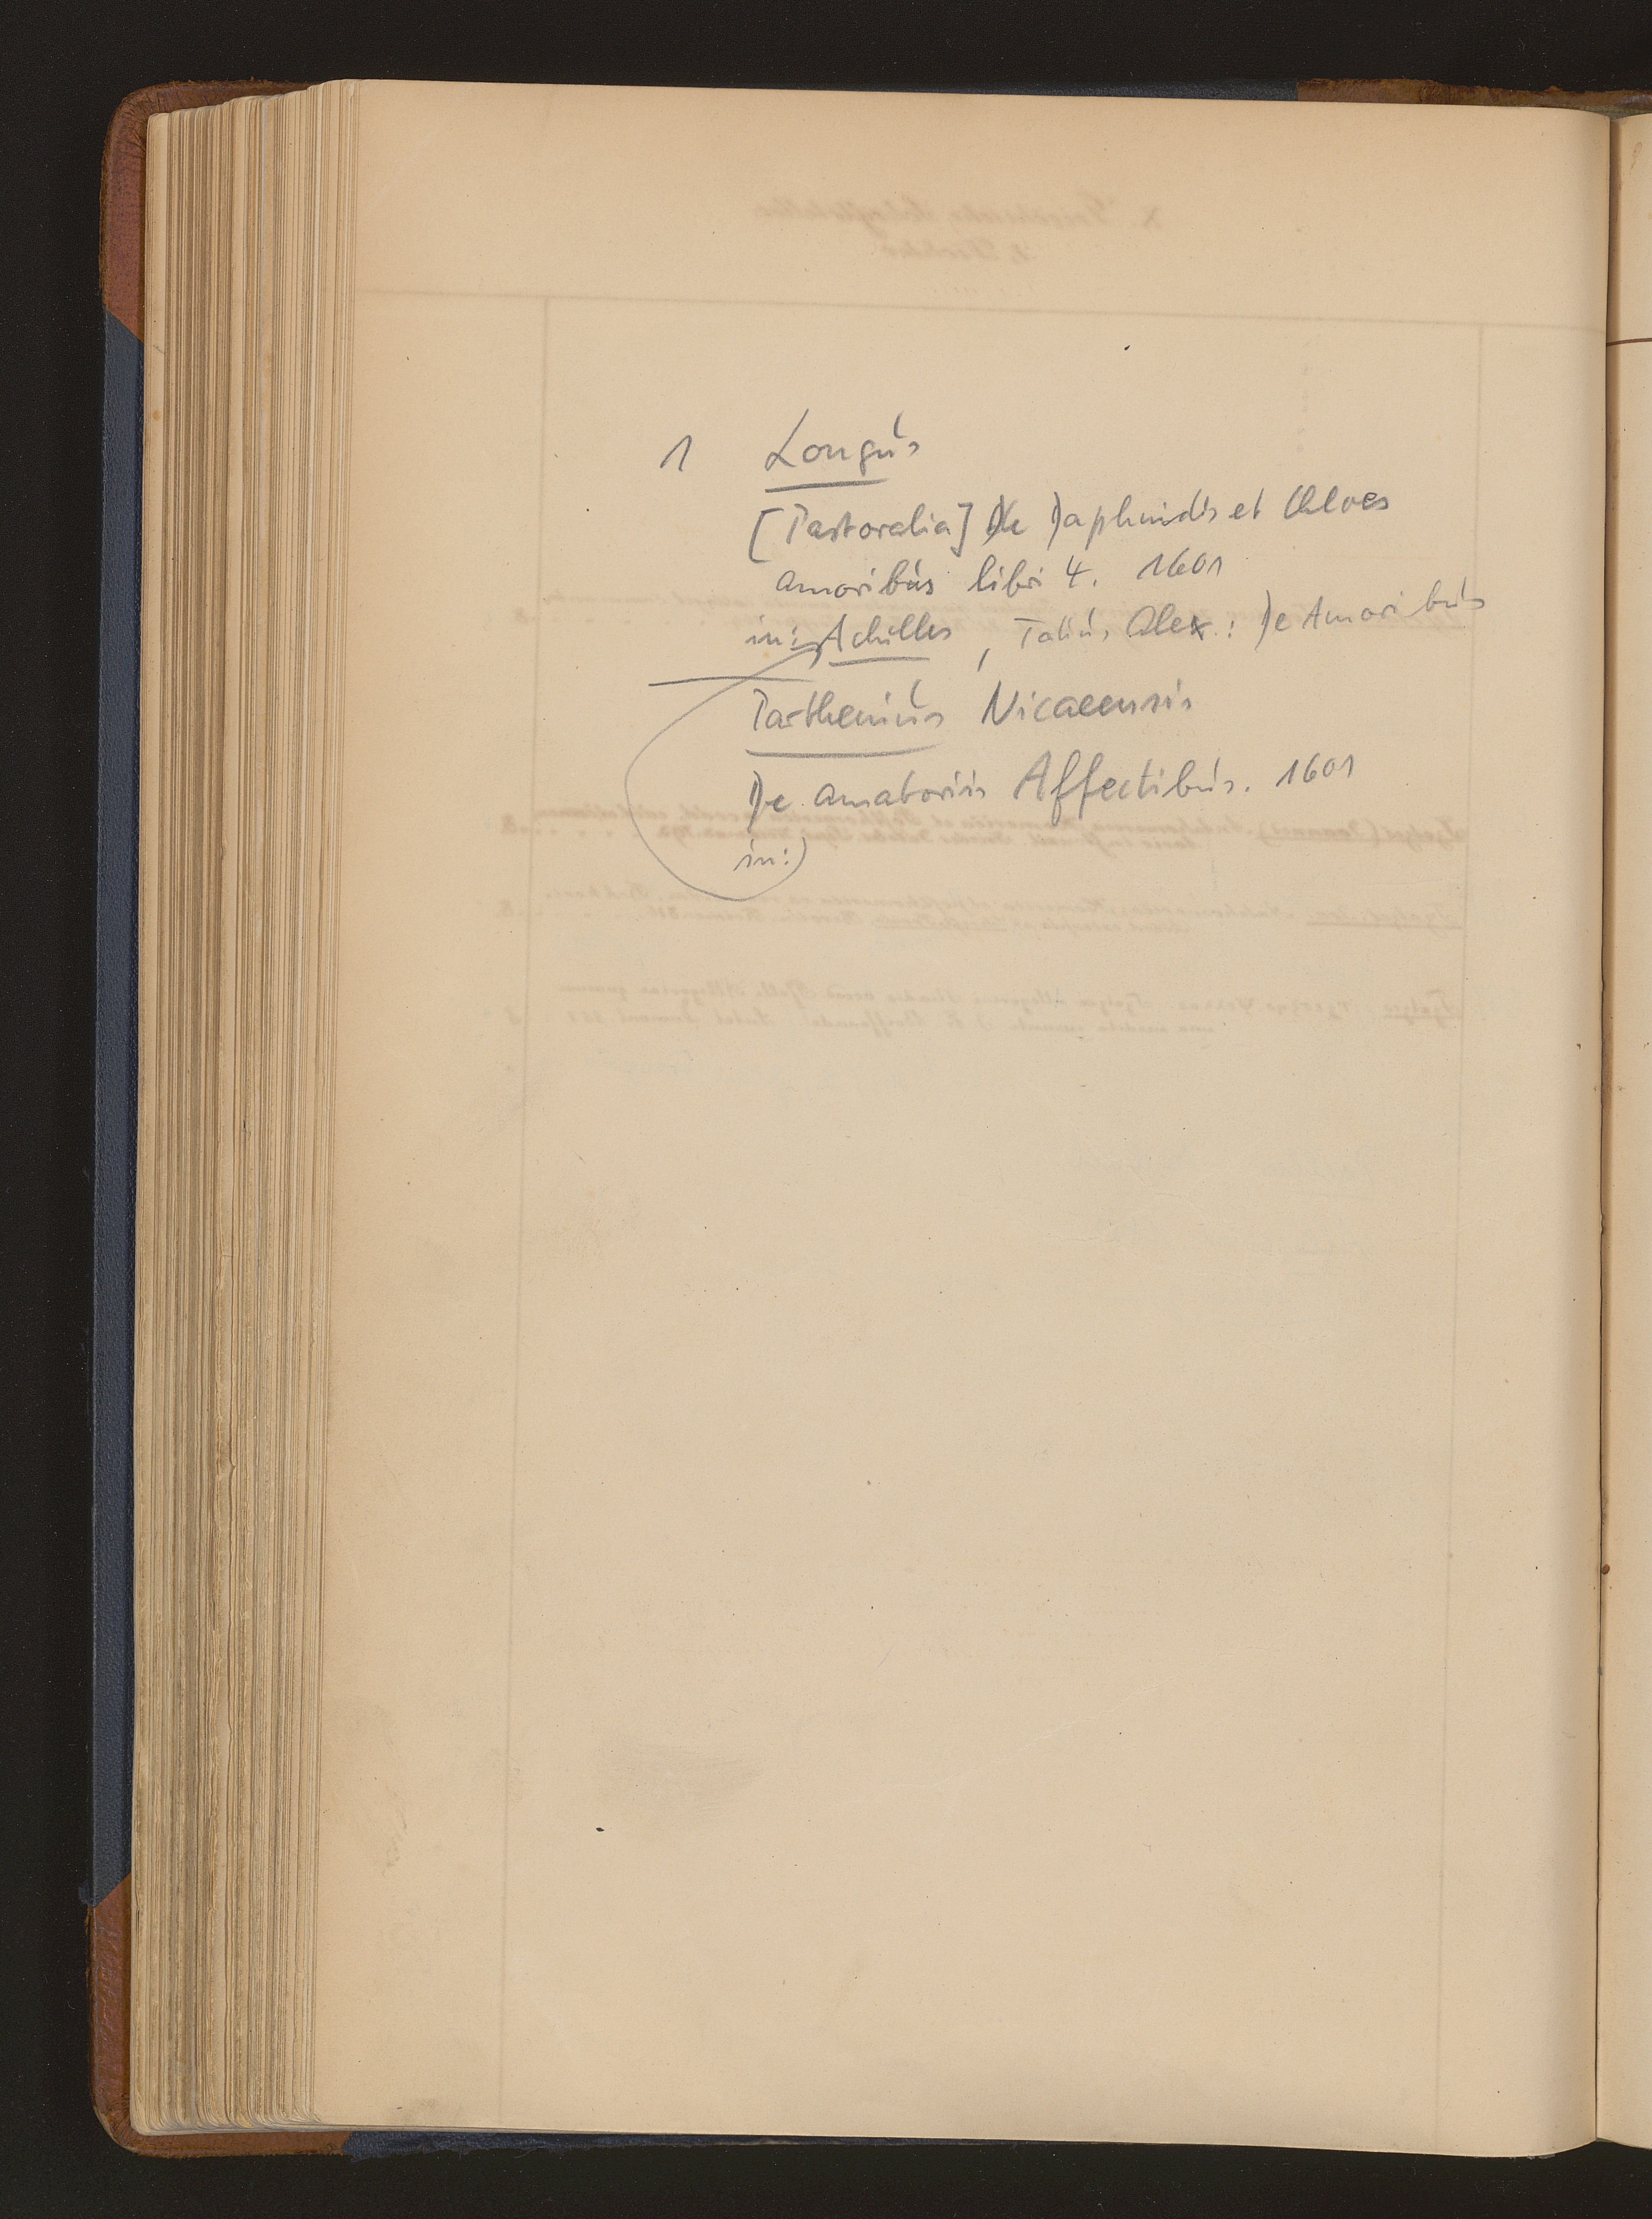 1 Longus
[Pastoralia] De Daphnidis et Chloes
amoribus libri 4. 1601
in: Achilles, Tatius Alex.: De Amoribus
Parthenius Nicaeensis
De amatoriis Affectibus. 1601
in: